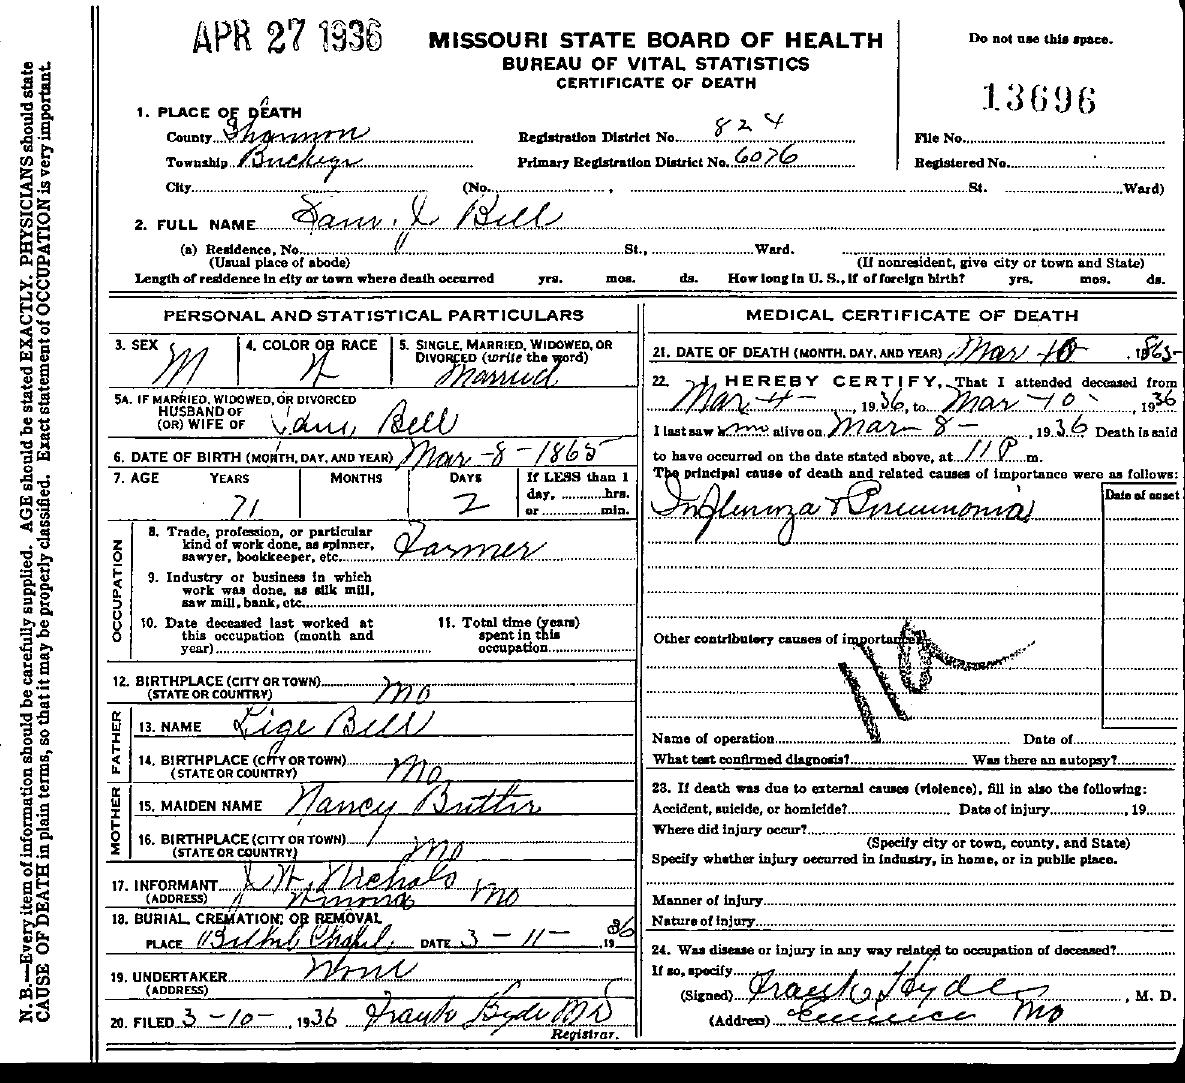 APR 27 1936
MISSOURI STATE BOARD OF HEALTH
BUREAU OF VITAL STATISTICS
CERTIFICATE OF DEATH
Do not use this space.
13696
1. PLACE OF DEATH
County Shannon
Registration District No. 824
File No.
Township
Primary Registration District No. 6076
Registered No.
City (No. , St. Ward)
2. FULL NAME Sam. J. Bell
(a) Residence, No. St., Ward.
(Usual place of abode) (If nonresident, give city or town and State)
Length of residence in city or town where death occurred yrs. mos. ds. How long in U. S., if of foreign birth? yrs. mos. ds.
PERSONAL AND STATISTICAL PARTICULARS
3. SEX M
4. COLOR OR RACE W
5. SINGLE, MARRIED, WIDOWED, OR
DIVORCED (write the word)
Married
5A. IF MARRIED, WIDOWED, OR DIVORCED
HUSBAND OF
(OR) WIFE OF Bell
6. DATE OF BIRTH (MONTH, DAY, AND YEAR) Mar - 8 - 1865
7. AGE YEARS MONTHS DAYS If LESS than 1
day, hrs.
or min.
71 2
OCCUPATION
8. Trade, profession, or particular
kind of work done, as spinner,
sawyer, bookkeeper, etc. Farmer
9. Industry or business in which
work was done, as silk mill,
saw mill, bank, etc.
10. Date deceased last worked at
this occupation (month and
year)
11. Total time (years)
spent in this
occupation
12. BIRTHPLACE (CITY OR TOWN)
(STATE OR COUNTRY) Mo
FATHER
13. NAME Lige Bell
14. BIRTHPLACE (CITY OR TOWN)
(STATE OR COUNTRY) Mo
MOTHER
15. MAIDEN NAME Nancy Butler
16. BIRTHPLACE (CITY OR TOWN)
(STATE OR COUNTRY) Mo
17. INFORMANT J. W. Nichols
(ADDRESS) Winona Mo
18. BURIAL, CREMATION, OR REMOVAL
PLACE Chapel DATE 3 - 11 - 1936
19. UNDERTAKER None
(ADDRESS)
20. FILED 3 - 10 - , 1936 Frank Hyde MD
Registrar.
MEDICAL CERTIFICATE OF DEATH
21. DATE OF DEATH (MONTH, DAY, AND YEAR) Mar 10 , 1865
22. I HEREBY CERTIFY, That I attended deceased from
Mar - 4 - , 1936, to Mar - 10 - , 1936
I last saw him alive on Mar - 8 - , 1936 Death is said
to have occurred on the date stated above, at 11 P m.
The principal cause of death and related causes of importance were as follows:
Date of onset
Influenza & Pneumonia
Other contributory causes of importance:
11a
Name of operation Date of
What test confirmed diagnosis? Was there an autopsy?
23. If death was due to external causes (violence), fill in also the following:
Accident, suicide, or homicide? Date of injury , 19
Where did injury occur?
(Specify city or town, county, and State)
Specify whether injury occurred in industry, in home, or in public place.
Manner of injury
Nature of injury
24. Was disease or injury in any way related to occupation of deceased?
If so, specify
(Signed) Frank Hyde , M. D.
(Address) Eminence Mo
N. B.—Every item of information should be carefully supplied. AGE should be stated EXACTLY. PHYSICIANS should state
CAUSE OF DEATH in plain terms, so that it may be properly classified. Exact statement of OCCUPATION is very important.